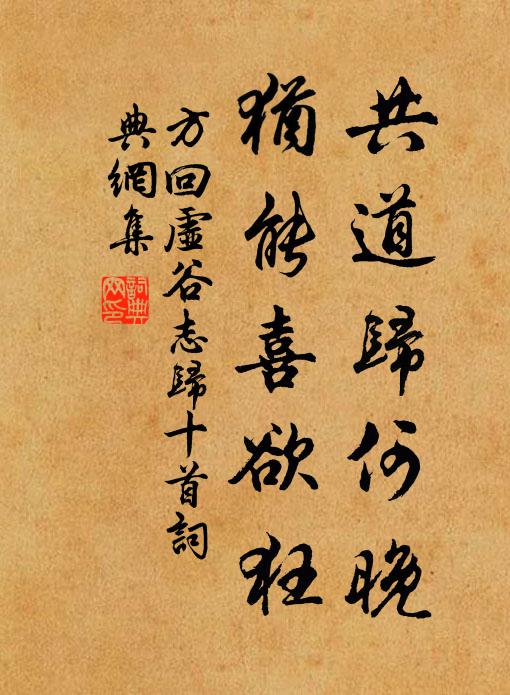 共道歸何晚
猶能喜欲狂
方回虛谷志歸十首詞
典網集
詞典
网印